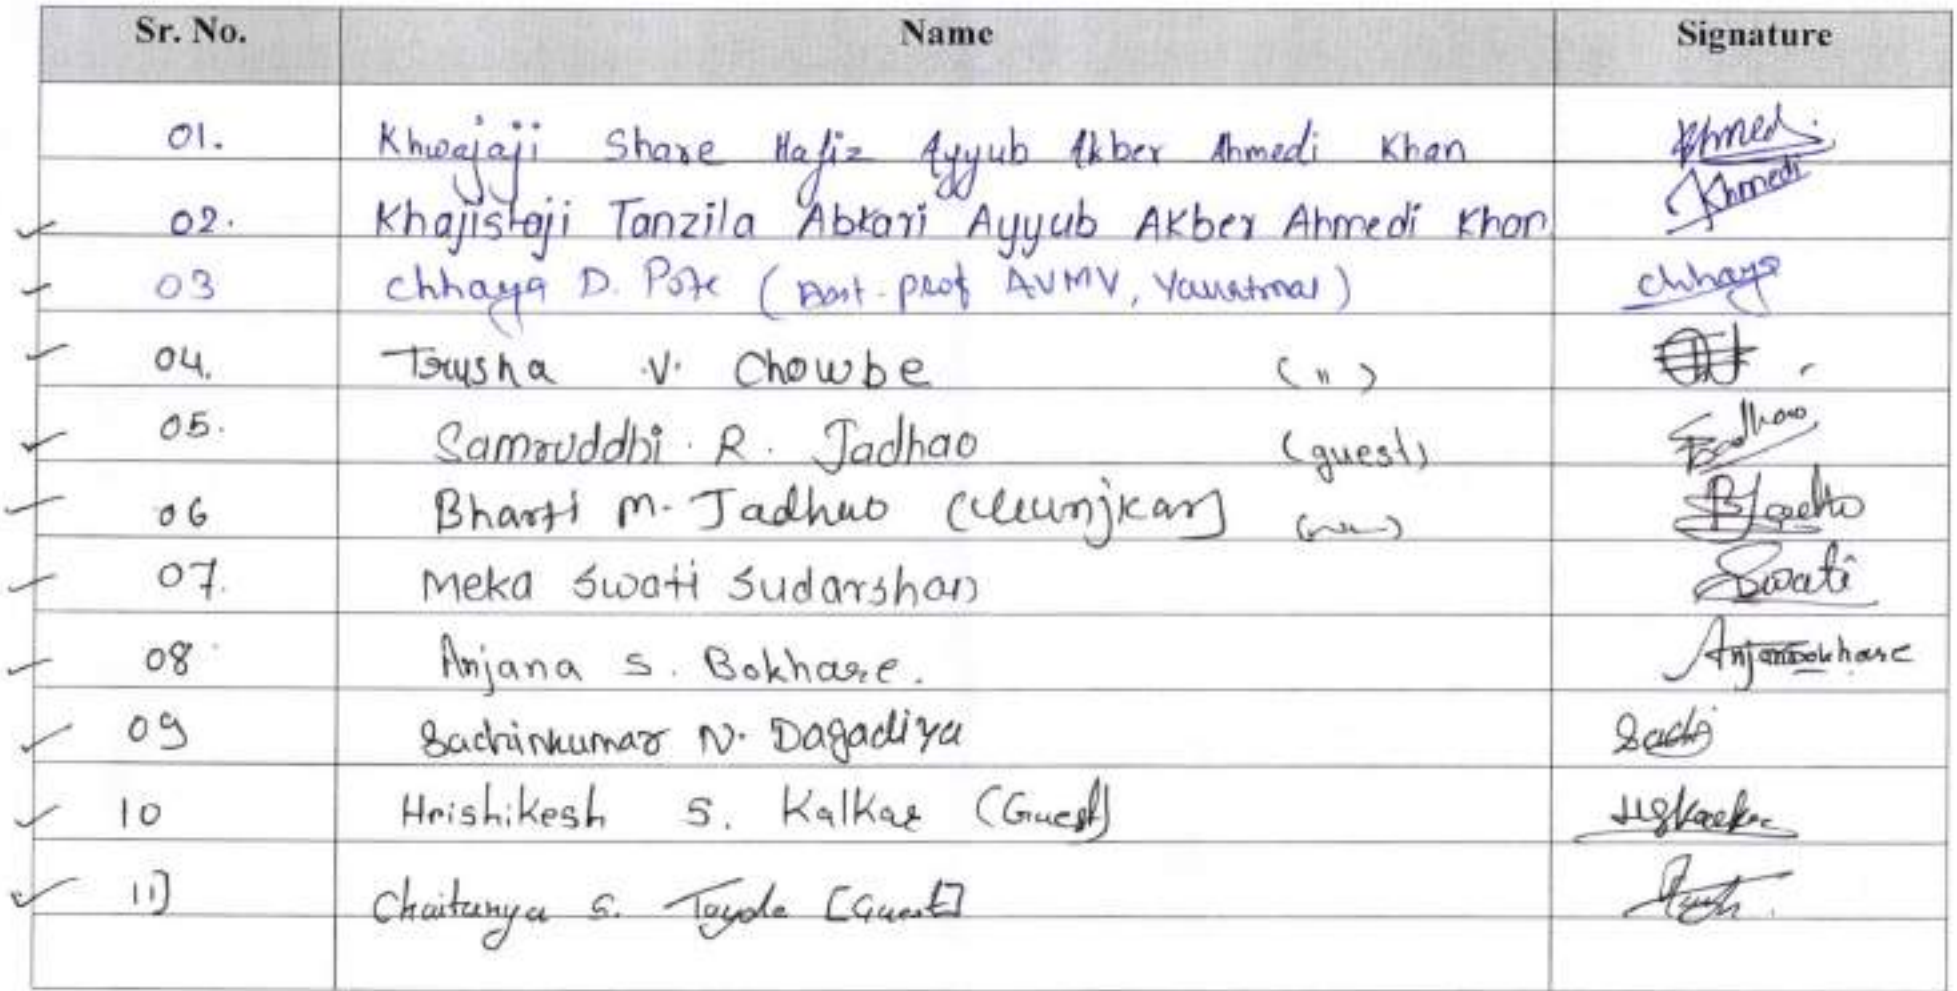 Sr. No. Name Signature
01. Khwajaji Share Hafiz Ayyub Akber Ahmedi Khan Ahmedi
02. Khajistaji Tanzila Abkari Ayyub Akber Ahmedi Khan Ahmedi
03 Chhaya D. Pote (Asst. prof AVMV, Yavatmal) Chhaya
04. Trusha V. Chowbe ( " )
05. Samruddhi R. Jadhao (guest) Jadhao
06 Bharti M. Jadhao
07. Meka Swati Sudarshan Swati
08 Anjana S. Bokhare. Anjanabokhare
09 Sachinkumar N. Dagadiya Sachi
10 Hrishikesh S. Kalkar (Guest)
11) Chaitanya S. Tayde [Guest]